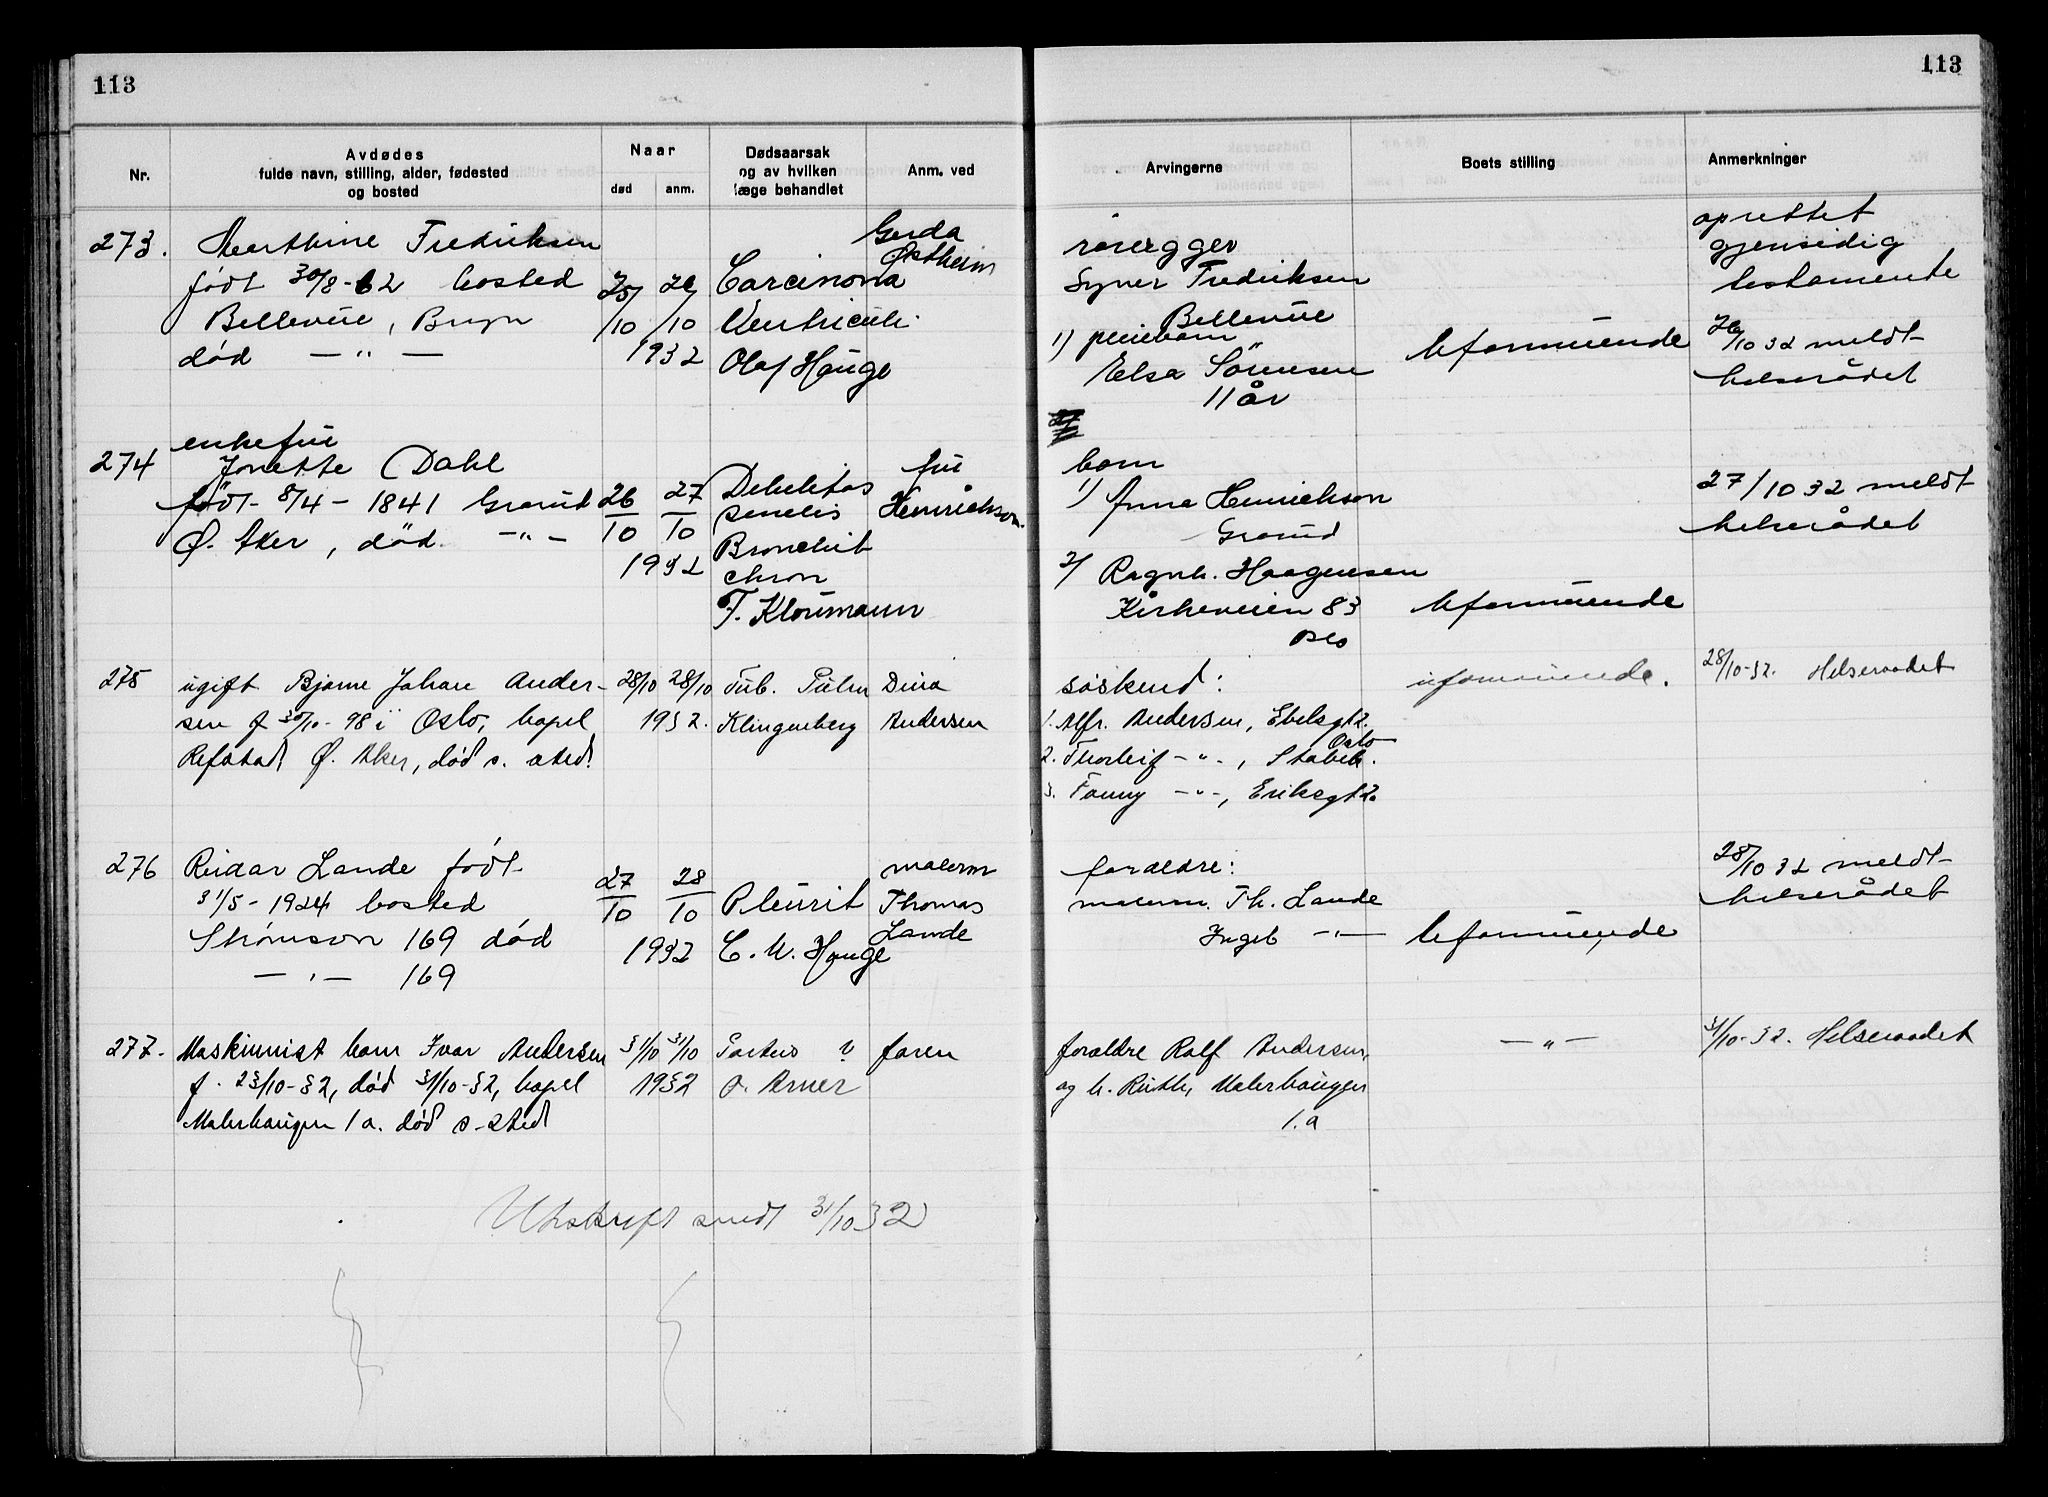 113
113
Nr.
Avdødes
fulde navn, stilling, alder, fødested
og bosted
Naar
død
anm.
Dødsaarsak
og av hvilken
læge behandlet
Anm. ved
Arvingerne
Boets stilling
Anmerkninger
273. Marthine Fredriksen
født 30/8-62 bosted
Bellevue, Bryn
død — " —
25/10
26/10
1932
Carcinoma
Ventriculi
Olaf Hauge
Gerda
Østheim
Syver Fredriksen
Bellevue
1) pleiebarn
Elsa Sörensen
11 år
Uformuende
oprettet
gjensidig
testamente
26/10 32 meldt
helserådet
274
enkefru
Jonette Dahl
født 8/4 - 1841 Grorud
Ø. Aker, død — " —
26/10
27/10
1932
Debilitas
senilis
Bronchit
chron
T. Kloumann
fru
Henrikson
barn
1) Anna Henrickson
Grorud
2/ Ragnh. Haagensen
Kirkeveien 83
Oslo
Uformuende
27/10 32 meldt
helserådet
275
ugift Bjarne Johan Ander-
sen f 30/10-98 i Oslo, bopel
Refstad Ø. Aker, død s. sted.
28/10
28/10
1932.
Tub. Pulm
Klingenberg
Dina
Andersen
søskend:
1. Alfr. Andersen, Ebelsgt 2.
Oslo
2. Thorleif — " —, Stabek.
3. Fanny — " —, Eriksgt 2.
uformuende.
28/10-32. Helseraadet
276
Reidar Lande født
31/5 - 1924 bosted
Strømsvn 169 død
— " — 169
27/10
28/10
1932
Pleurit
C. M. Hauge
malerm
Thomas
Lande
foraldre:
malerm. Th. Lande
Ingeb — " —
Uformuende
28/10 32 meldt
helserådet
277.
Maskinnist barn Ivar Andersen
f. 23/10-32, død 31/10-32, bopel
Malerhaugen 1 a. død s-sted
31/10
31/10
1932
Partus
faren
foraldre Ralf Andersen
og h. Ruth, Malerhauggn
1. a
— " —
31/10-32. Helseraadet
Utskrift sendt 31/10 32